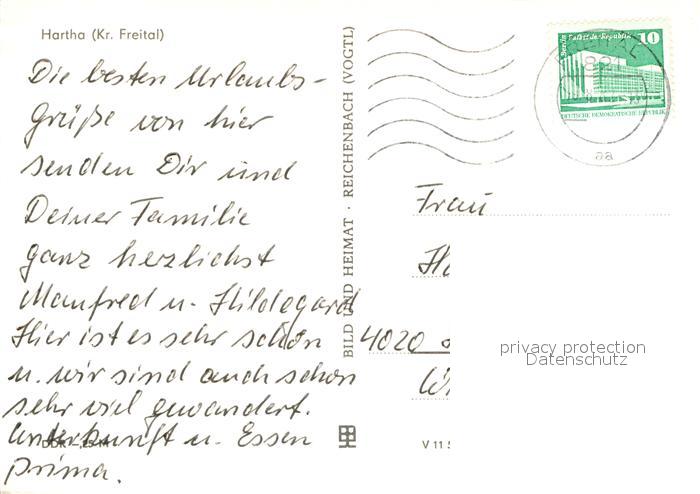 Hartha (Kr. Freital)
Die besten Urlaubs-
grüße von hier
senden Dir und
Deiner Familie
ganz herzlichst
Manfred u. Hildegard
Hier ist es sehr schön
u. wir sind auch schon
sehr viel gewandert.
Unterkunft u. Essen
prima.
BILD UND HEIMAT · REICHENBACH (VOGTL)
V 11 5
Berlin Palast der Republik 10
DEUTSCHE DEMOKRATISCHE REPUBLIK
FREITAL
821
aa
Frau
4020
privacy protection
Datenschutz